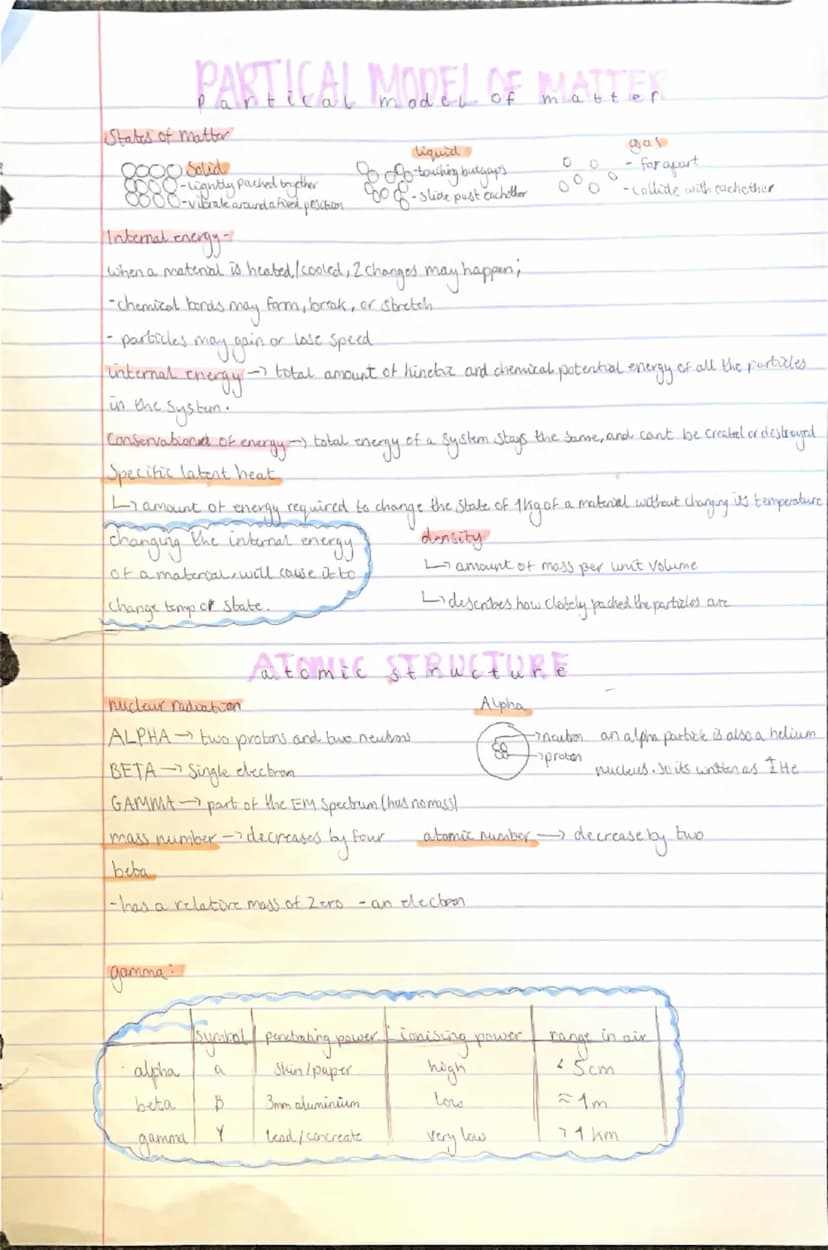 PARTICAL MODEL OF MATTER
partical model of matter
States of matter
Solid
-tightly packed together
-vibrate around a fixed position
liquid
-touching but gaps
-slide past eachother
gas
- far apart
-collide with eachother
Internal energy-
when a material is heated/cooled, 2 changes may happen;
-chemical bonds may form, break, or stretch
- particles may gain or lose speed
internal energy → total amount of kinetic and chemical potential energy of all the particles
in the system.
Conservation of energy → total energy of a system stays the same, and cant be created or destroyed
Specific latent heat
↳ amount of energy required to change the state of 1kg of a material without changing its temperature
changing the internal energy
of a material, will cause it to
change temp or state.
density
↳ amount of mass per unit volume
↳ describes how closely packed the particles are
ATOMIC STRUCTURE
atomic structure
nuclear radiation
ALPHA → two protons and two neutrons
BETA → Single electron
GAMMA → part of the EM spectrum (has no mass)
Alpha
→ neutron
→ proton
an alpha particle is also a helium
nucleus. so its written as ⁴₂He
mass number → decreases by four atomic number → decrease by two
beta
-has a relative mass of Zero - an electron
gamma:
symbol penetrating power ionising power range in air
alpha α skin/paper high < 5cm
beta β 3mm aluminium low ≈ 1m
gamma γ lead/concreate very low > 1km